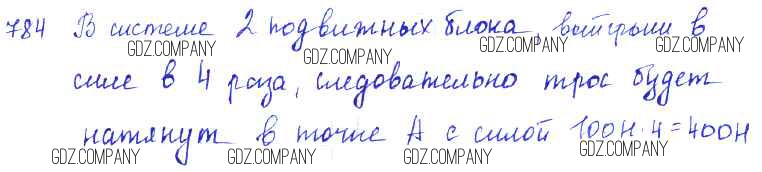 784 В системе 2 подвижных блока, выигрыш в
GDZ.COMPANY GDZ.COMPANY GDZ.COMPANY
силе в 4 раза, следовательно трос будет
GDZ.COMPANY GDZ.COMPANY GDZ.COMPANY
натянут в точке А с силой 100Н·4=400Н
GDZ.COMPANY GDZ.COMPANY GDZ.COMPANY GDZ.COMPANY